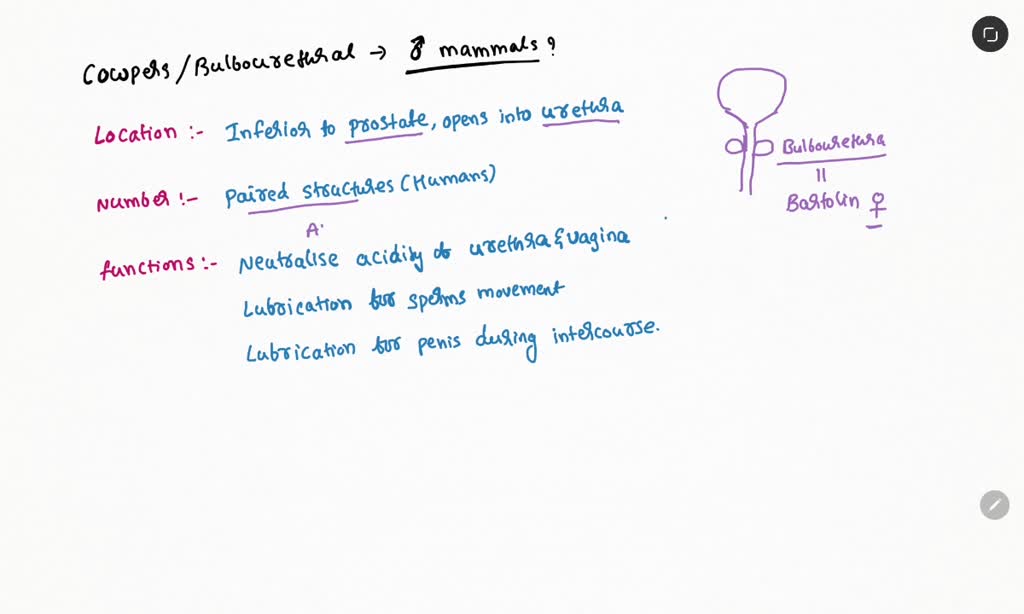 Cowpers/Bulbouretural → ♂ mammals?
Location :- Inferior to prostate, opens into uretura
Number :- Paired structures (Humans)
A:
functions :- Neutralise acidity of urethra & vagina
Lubrication for sperms movement
Lubrication for penis during intercourse.
Bulbouretura
||
Bartolin ♀